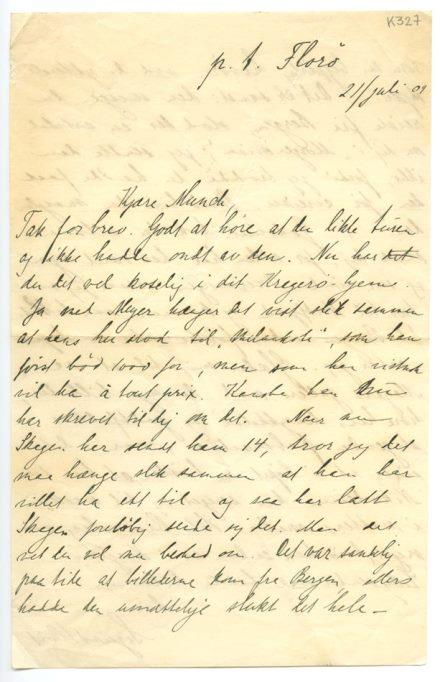 K327
p. t. Florö
21/juli 09
Kjære Munch,
Tak for brev. Godt at höre at du likte turen
og ikke hadde ondt av den. Nu har det
du det vel koselig i dit Kragerö-hjem.
Ja med Meyer hænger det vist slik sammen
at hans hu stod til "Melankoli", som han
først böd 1000 for, men som han
vil ha à tout prix. Kanske han
har skrevet til dig om det. Naar nu
Skogen har sendt ham 14, tror jeg det
maa hænge slik sammen at han har
villet ha ett til og saa har latt
Skogen foreløbig sende sig det. Men det
vet du vel nu besked om. Det var sandelig
paa tide at billederne kom fra Bergen, ellers
hadde den umættelige slukt det hele –